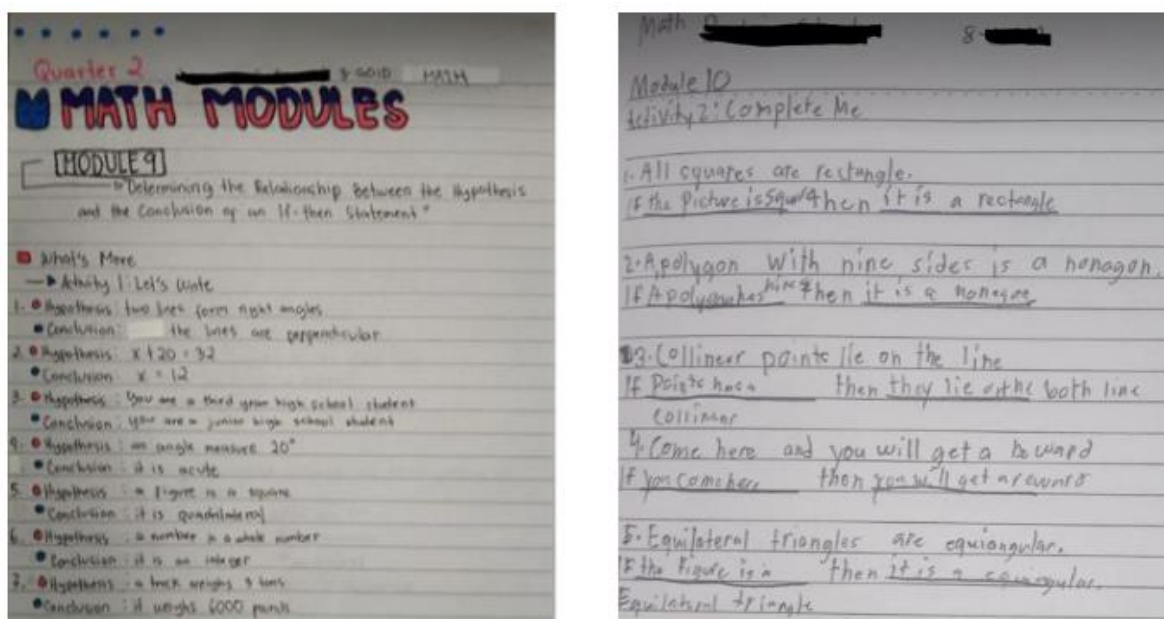 Quarter 2 8-GOLD MATH
MATH MODULES
MODULE 9
"Determining the Relationship Between the Hypothesis
and the Conclusion of an If-then Statement"
What's More
Activity 1: Let's Write
1. Hypothesis: two lines form right angles
Conclusion: the lines are perpendicular
2. Hypothesis: x + 20 = 32
Conclusion: x = 12
3. Hypothesis: You are a third year high school student
Conclusion: you are a junior high school student
4. Hypothesis: an angle measure 20°
Conclusion: it is acute
5. Hypothesis: a figure is a square
Conclusion: it is quadrilateral
6. Hypothesis: a number is a whole number
Conclusion: it is an integer
7. Hypothesis: a truck weighs 3 tons
Conclusion: it weighs 6000 pounds
Math 8-
Module 10
Activity 2: Complete Me
1. All squares are rectangle.
If the picture is then it is a rectangle
2. A polygon with nine sides is a nonagon.
If A polygon has then it is a
3. Collinear points lie on the line
If Points then they lie both line
collinear
4. Come here and you will get a
If you come here then you will get a reward
5. Equilateral triangles are equiangular.
If the Figure is a then it is a equiangular.
Equilateral triangle